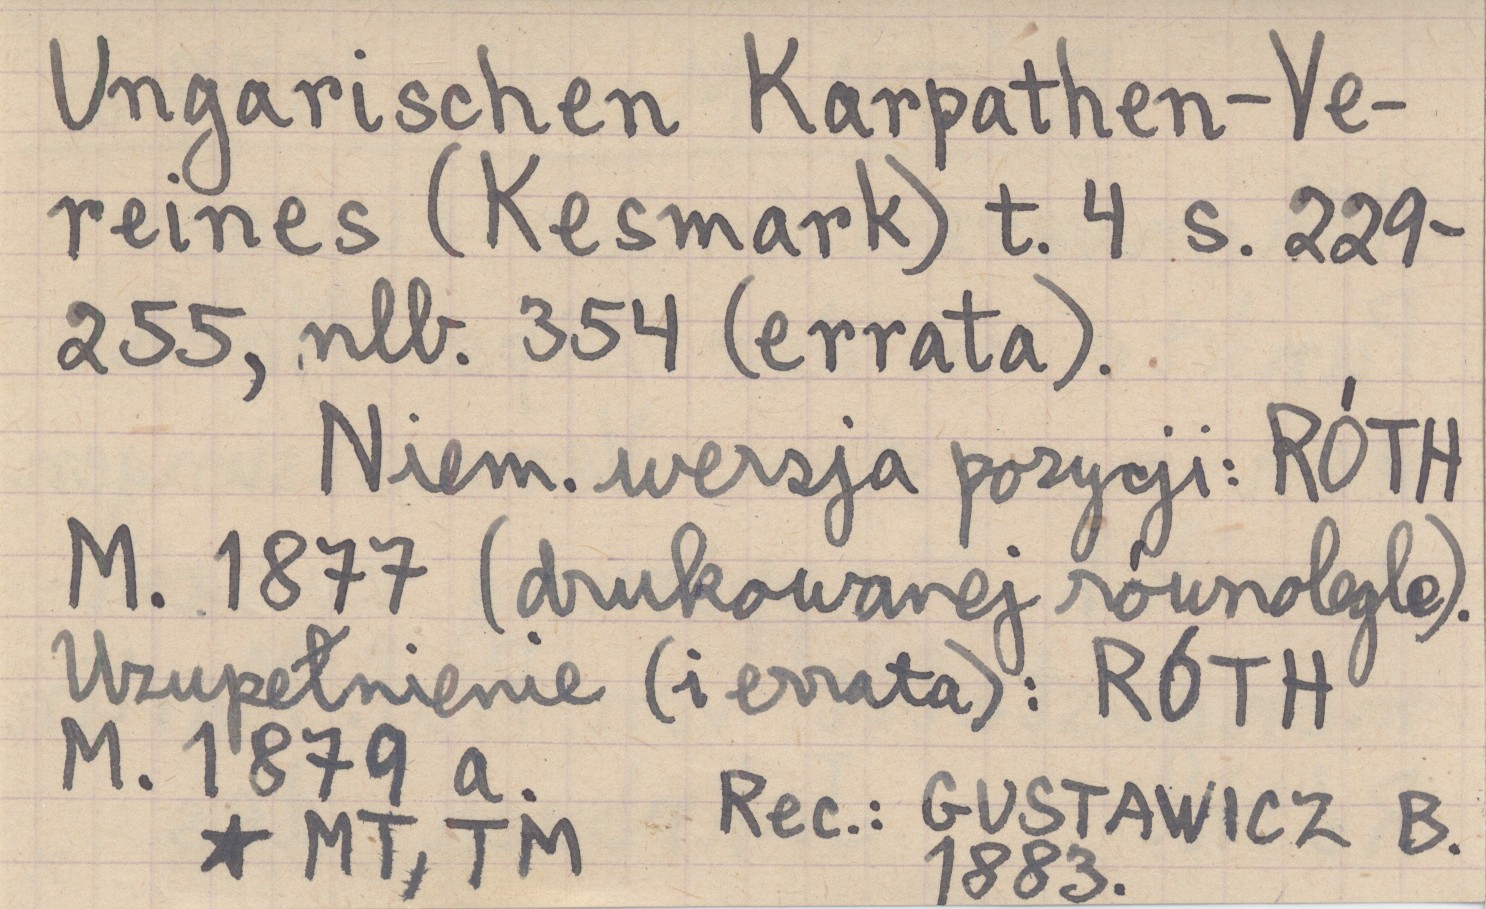 Ungarischen Karpathen-Ve-
reines (Kesmark) t. 4 s. 229-
255, nlb. 354 (errata).
Niem. wersja pozycji: RÓTH
M. 1877 (drukowanej równolegle).
Uzupełnienie (i errata): RÓTH
M. 1879 a.
★ MT, TM
Rec.: GUSTAWICZ B.
1883.